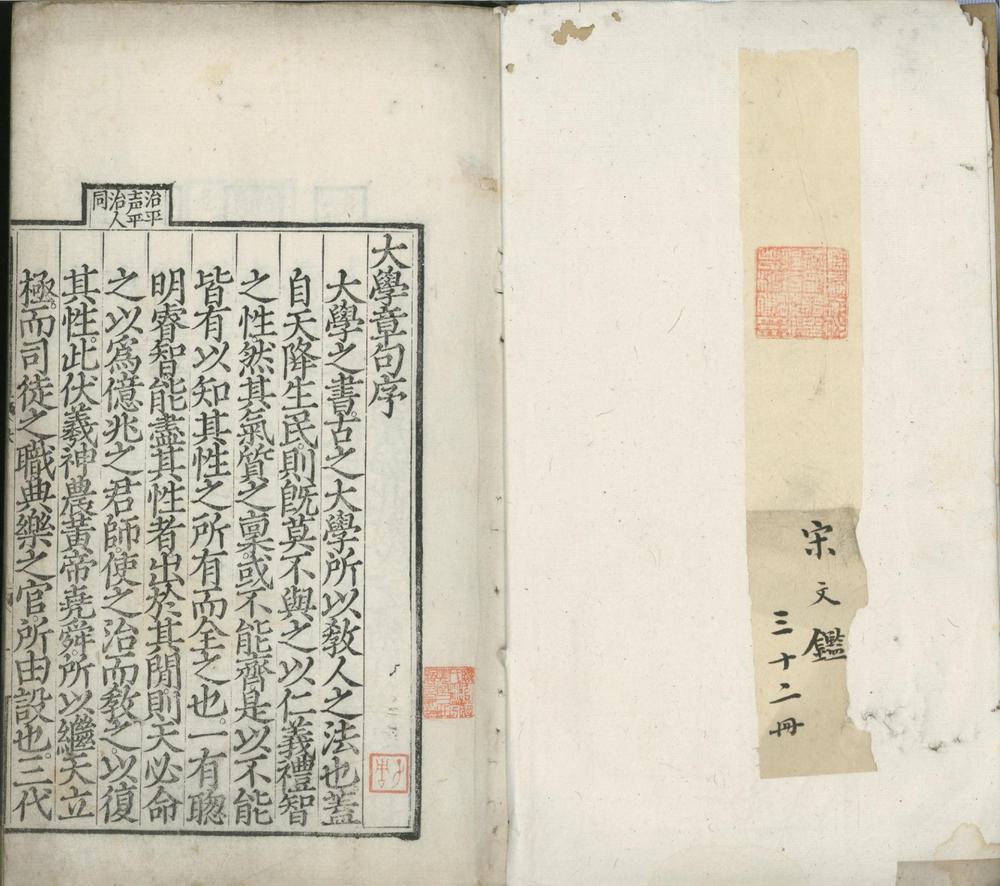 宋文鑑
三十二冊
治平
声平
治人
同
大學章句序
大學之書古之大學所以敎人之法也蓋
自天降生民則旣莫不與之以仁義禮智
之性然其氣質之稟或不能齊是以不能
皆有以知其性之所有而全之也一有聰
明睿智能盡其性者出於其閒則天必命
之以爲億兆之君師使之治而敎之以復
其性此伏羲神農黃帝堯舜所以繼天立
極而司徒之職典樂之官所由設也三代